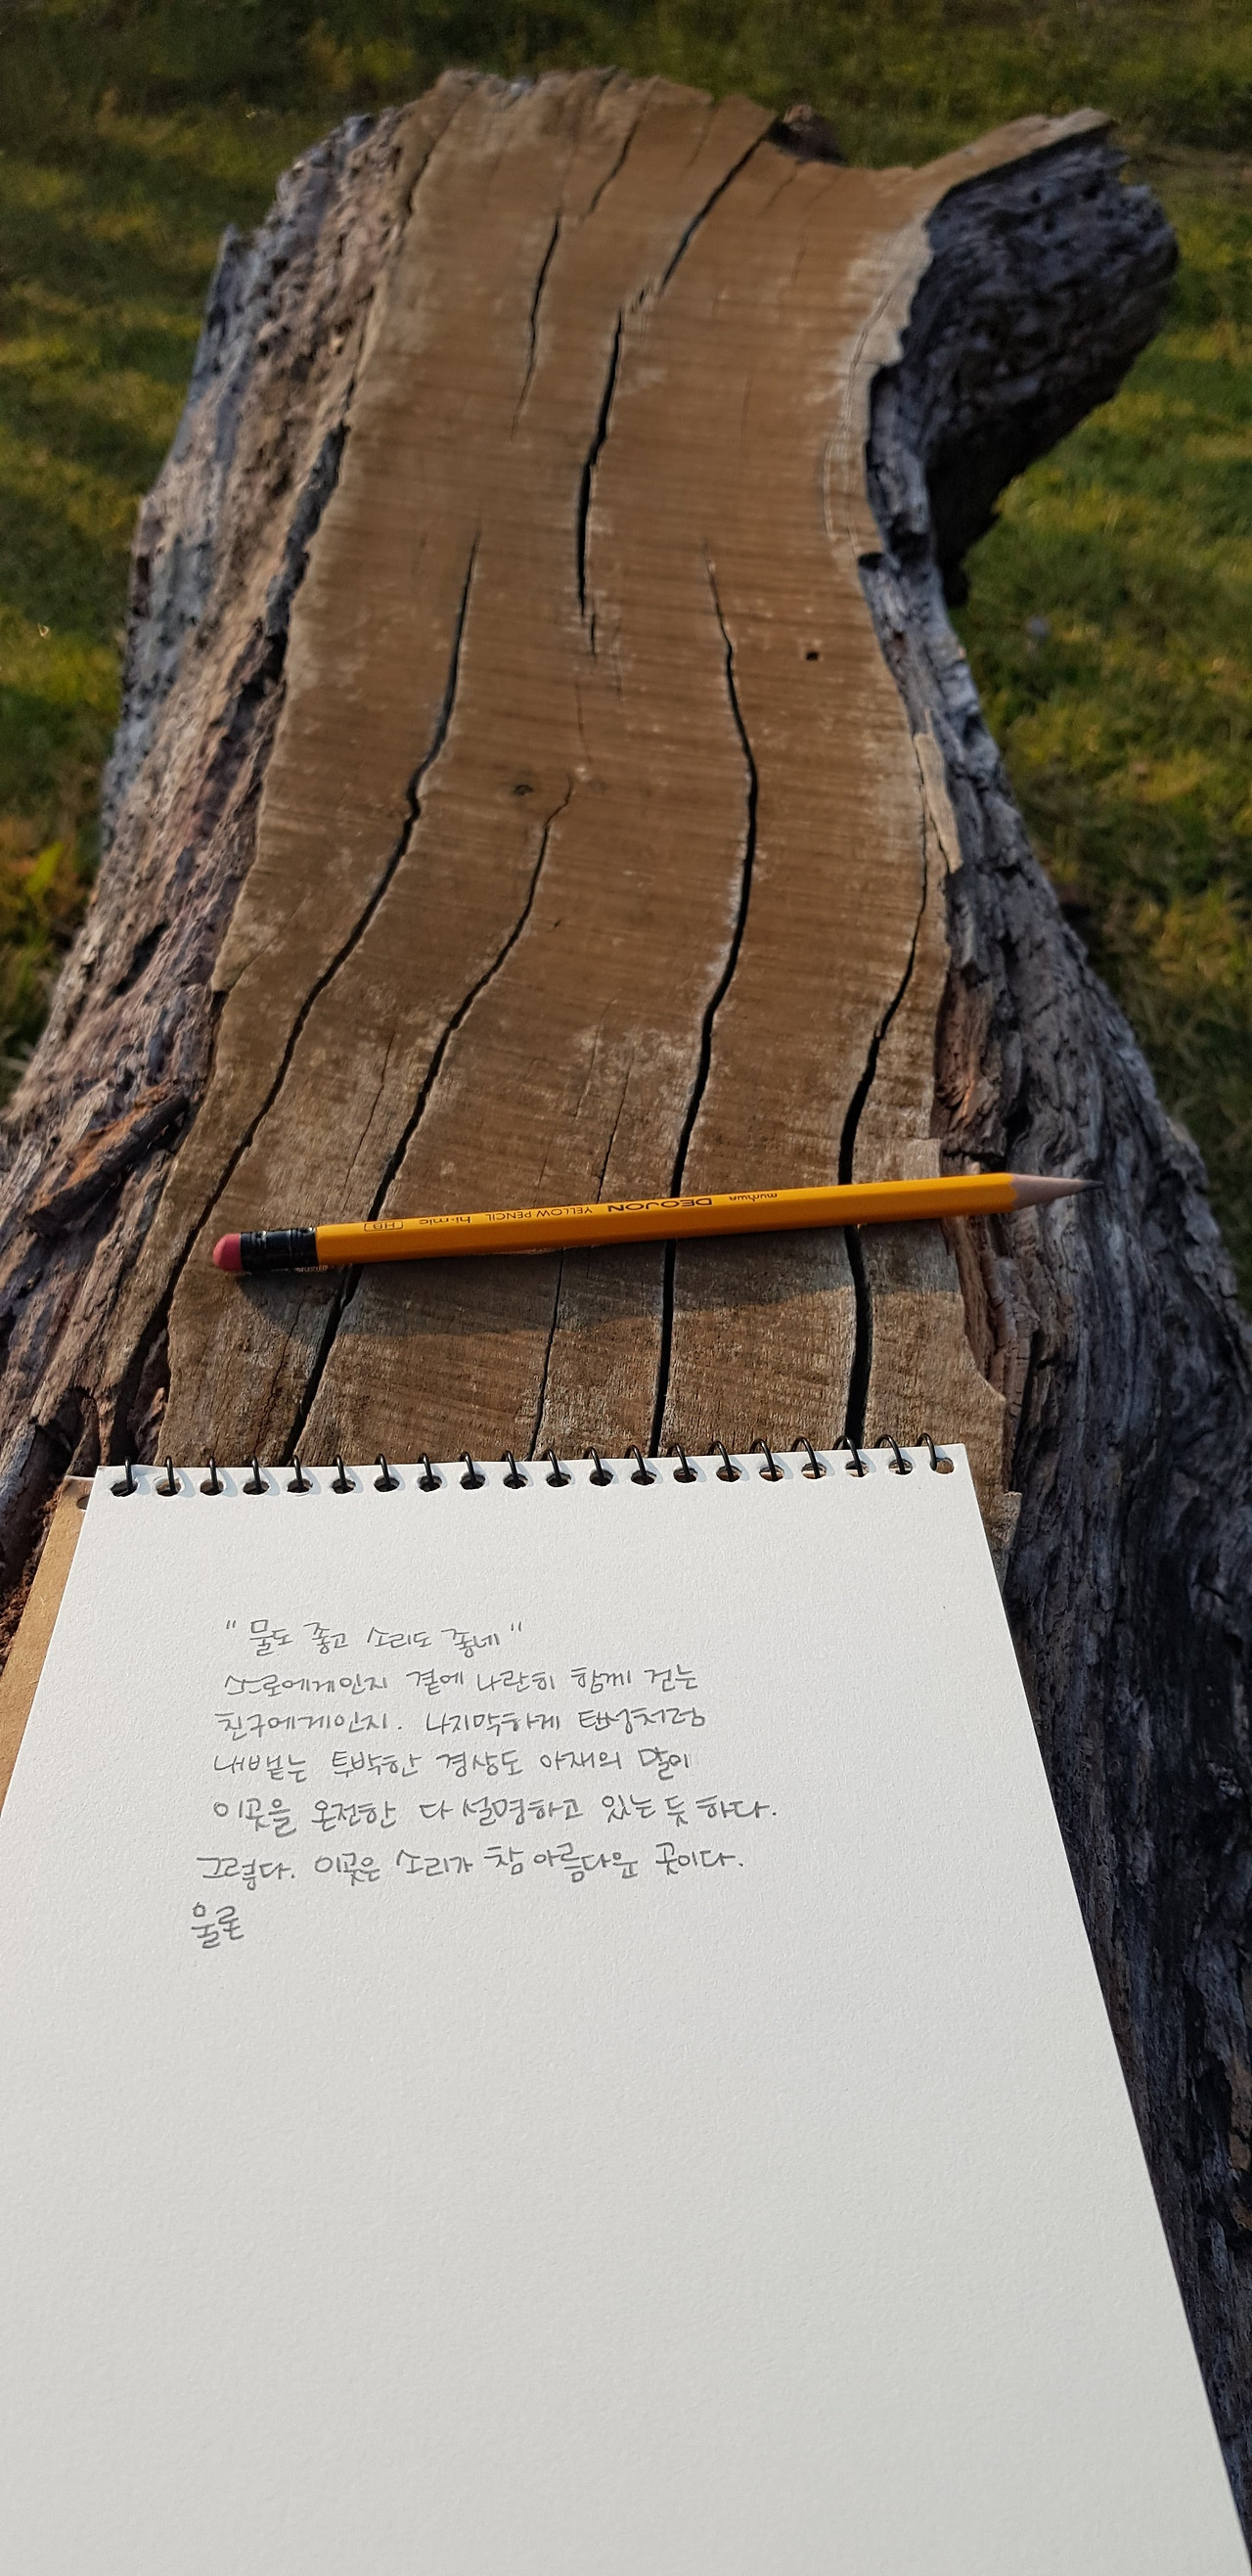 munhwa DEOJON YELLOW PENCIL hi-mic HB
"물도 좋고 소리도 좋네"
스로에게인지 곁에 나란히 함께 걷는
친구에게인지. 나지막하게 탄성처럼
내뱉는 투박한 경상도 아재의 말이
이곳을 온전한 다 설명하고 있는 듯 하다.
그렇다. 이곳은 소리가 참 아름다운 곳이다.